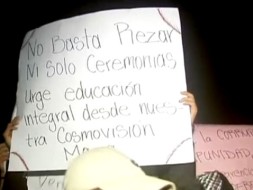 No Basta Rezar
Ni Solo Ceremonias,
Urge educación
integral desde nues-
tra Cosmovisión
la Comuni
PUNIDAD,